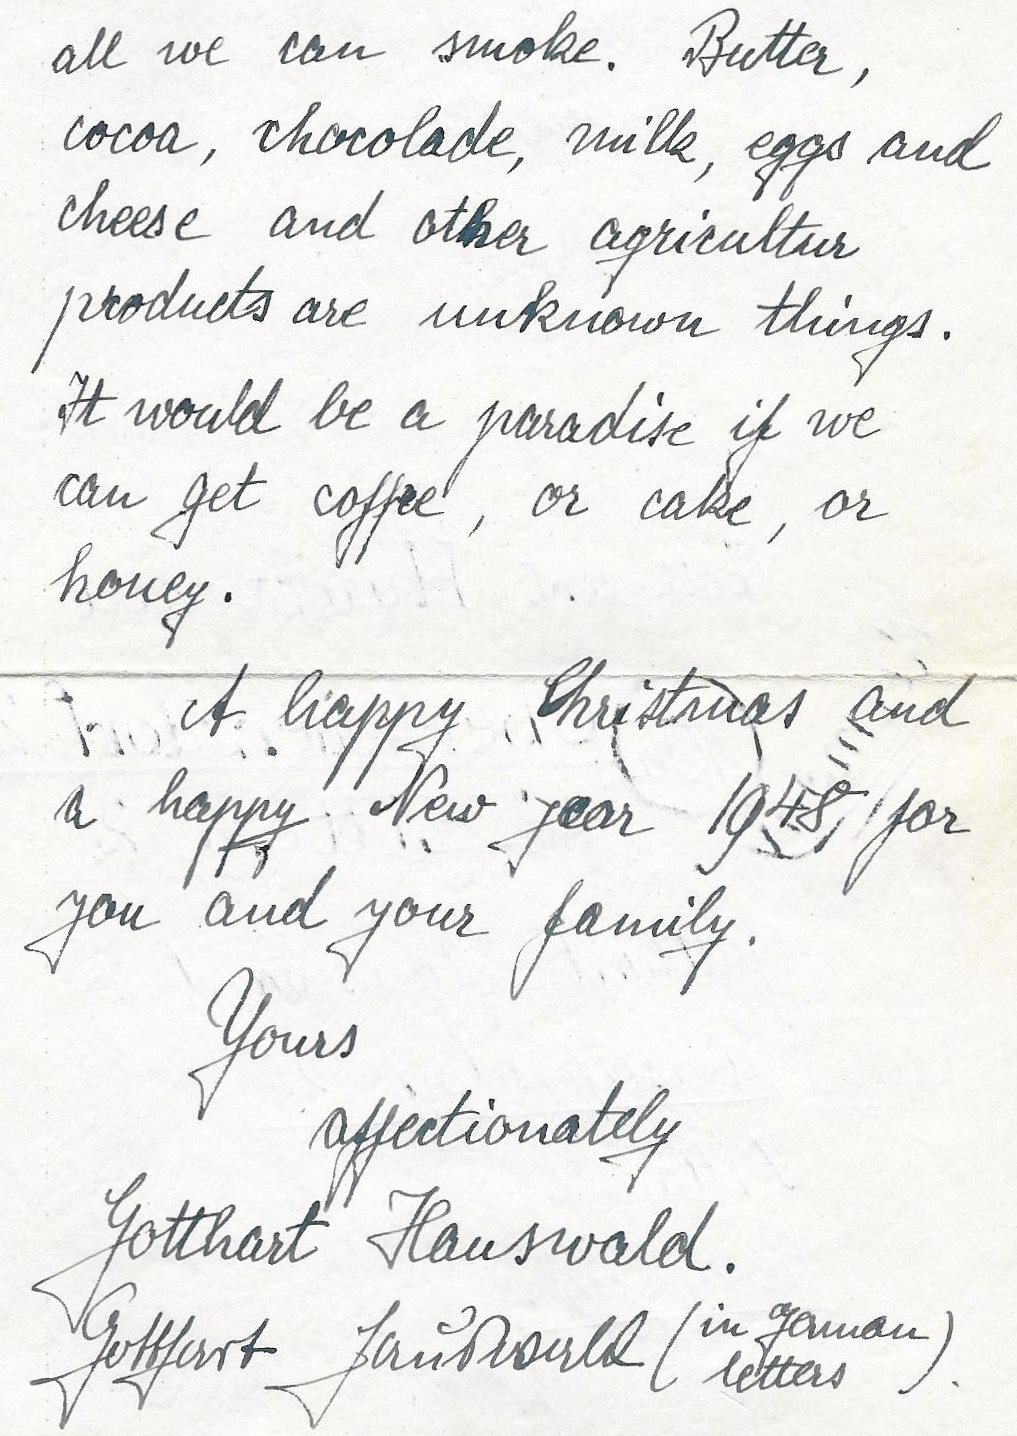 all we can smoke. Butter,
cocoa, chocolade, milk, eggs and
cheese and other agricultur
products are unknown things.
It would be a paradise if we
can get coffee, or cake, or
honey.
A happy Christmas and
a happy New year 1948 for
you and your family.
Yours
affectionately
Gotthart Hauswald.
Gotthart Hauswald (in german
letters).